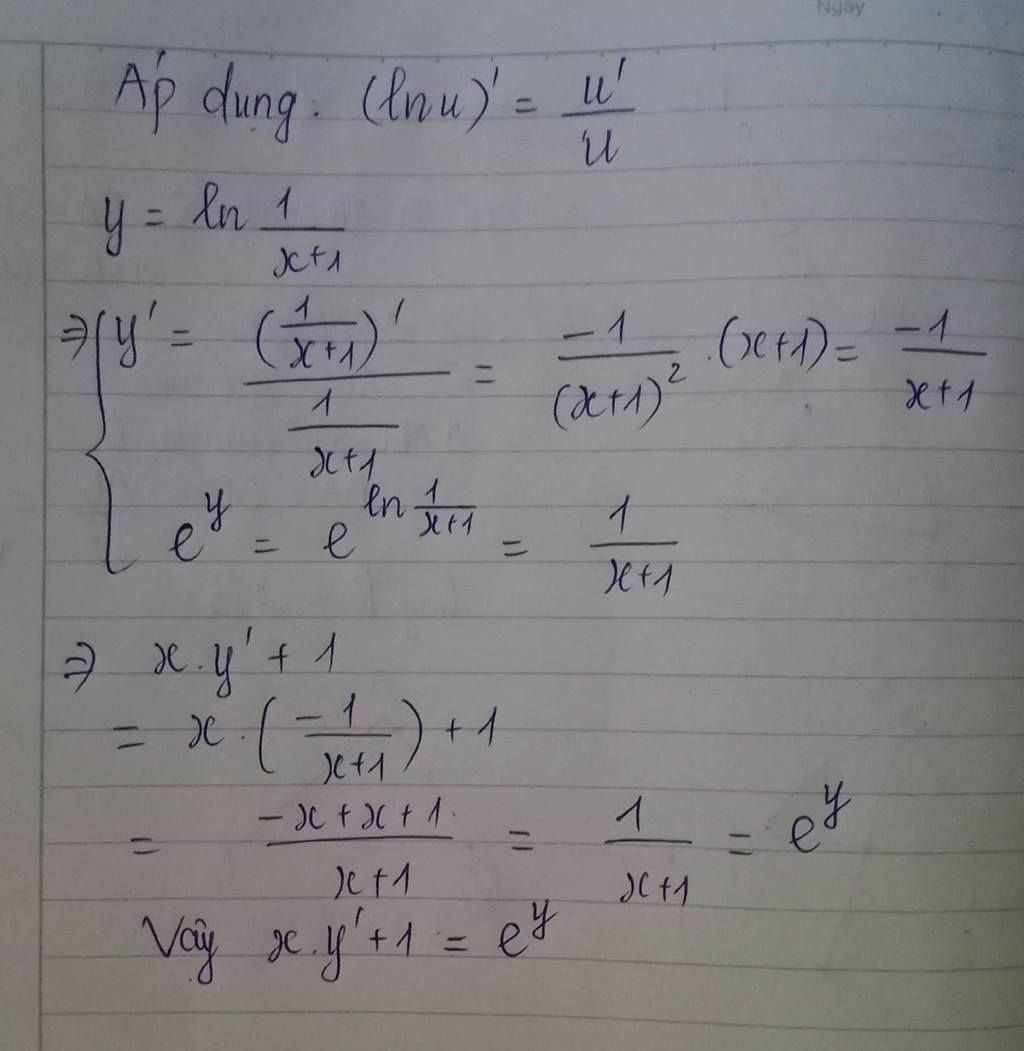 Ngày
Áp dụng: (ln u)' = u'/u
y = ln 1/(x+1)
⇒ { y' = (1/(x+1))' / (1/(x+1)) = -1/(x+1)² . (x+1) = -1/(x+1)
e^y = e^(ln 1/(x+1)) = 1/(x+1)
⇒ x.y' + 1
= x.(-1/(x+1)) + 1
= (-x+x+1)/(x+1) = 1/(x+1) = e^y
Vậy x.y'+1 = e^y